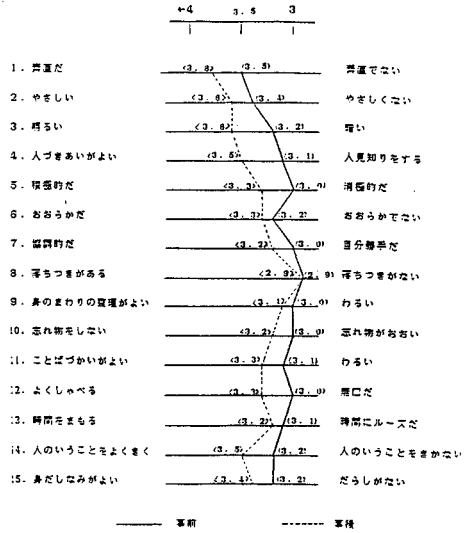 ←4 3.5 3
1. 素直だ (3.8) (3.5) 素直でない
2. やさしい (3.6) (3.4) やさしくない
3. 明るい (3.6) (3.2) 暗い
4. 人づきあいがよい (3.5) (3.1) 人見知りをする
5. 積極的だ (3.3) (3.0) 消極的だ
6. おおらかだ (3.3) (3.2) おおらかでない
7. 協調的だ (3.2) (3.0) 自分勝手だ
8. 落ちつきがある (2.9) (2.9) 落ちつきがない
9. 身のまわりの整理がよい (3.1) (3.0) わるい
10. 忘れ物をしない (3.2) (3.0) 忘れ物がおおい
11. ことばづかいがよい (3.3) (3.1) わるい
12. よくしゃべる (3.3) (3.0) 無口だ
13. 時間をまもる (3.2) (3.1) 時間にルーズだ
14. 人のいうことをよくきく (3.5) (3.2) 人のいうことをきかない
15. 身だしなみがよい (3.4) (3.2) だらしがない
事前 事後